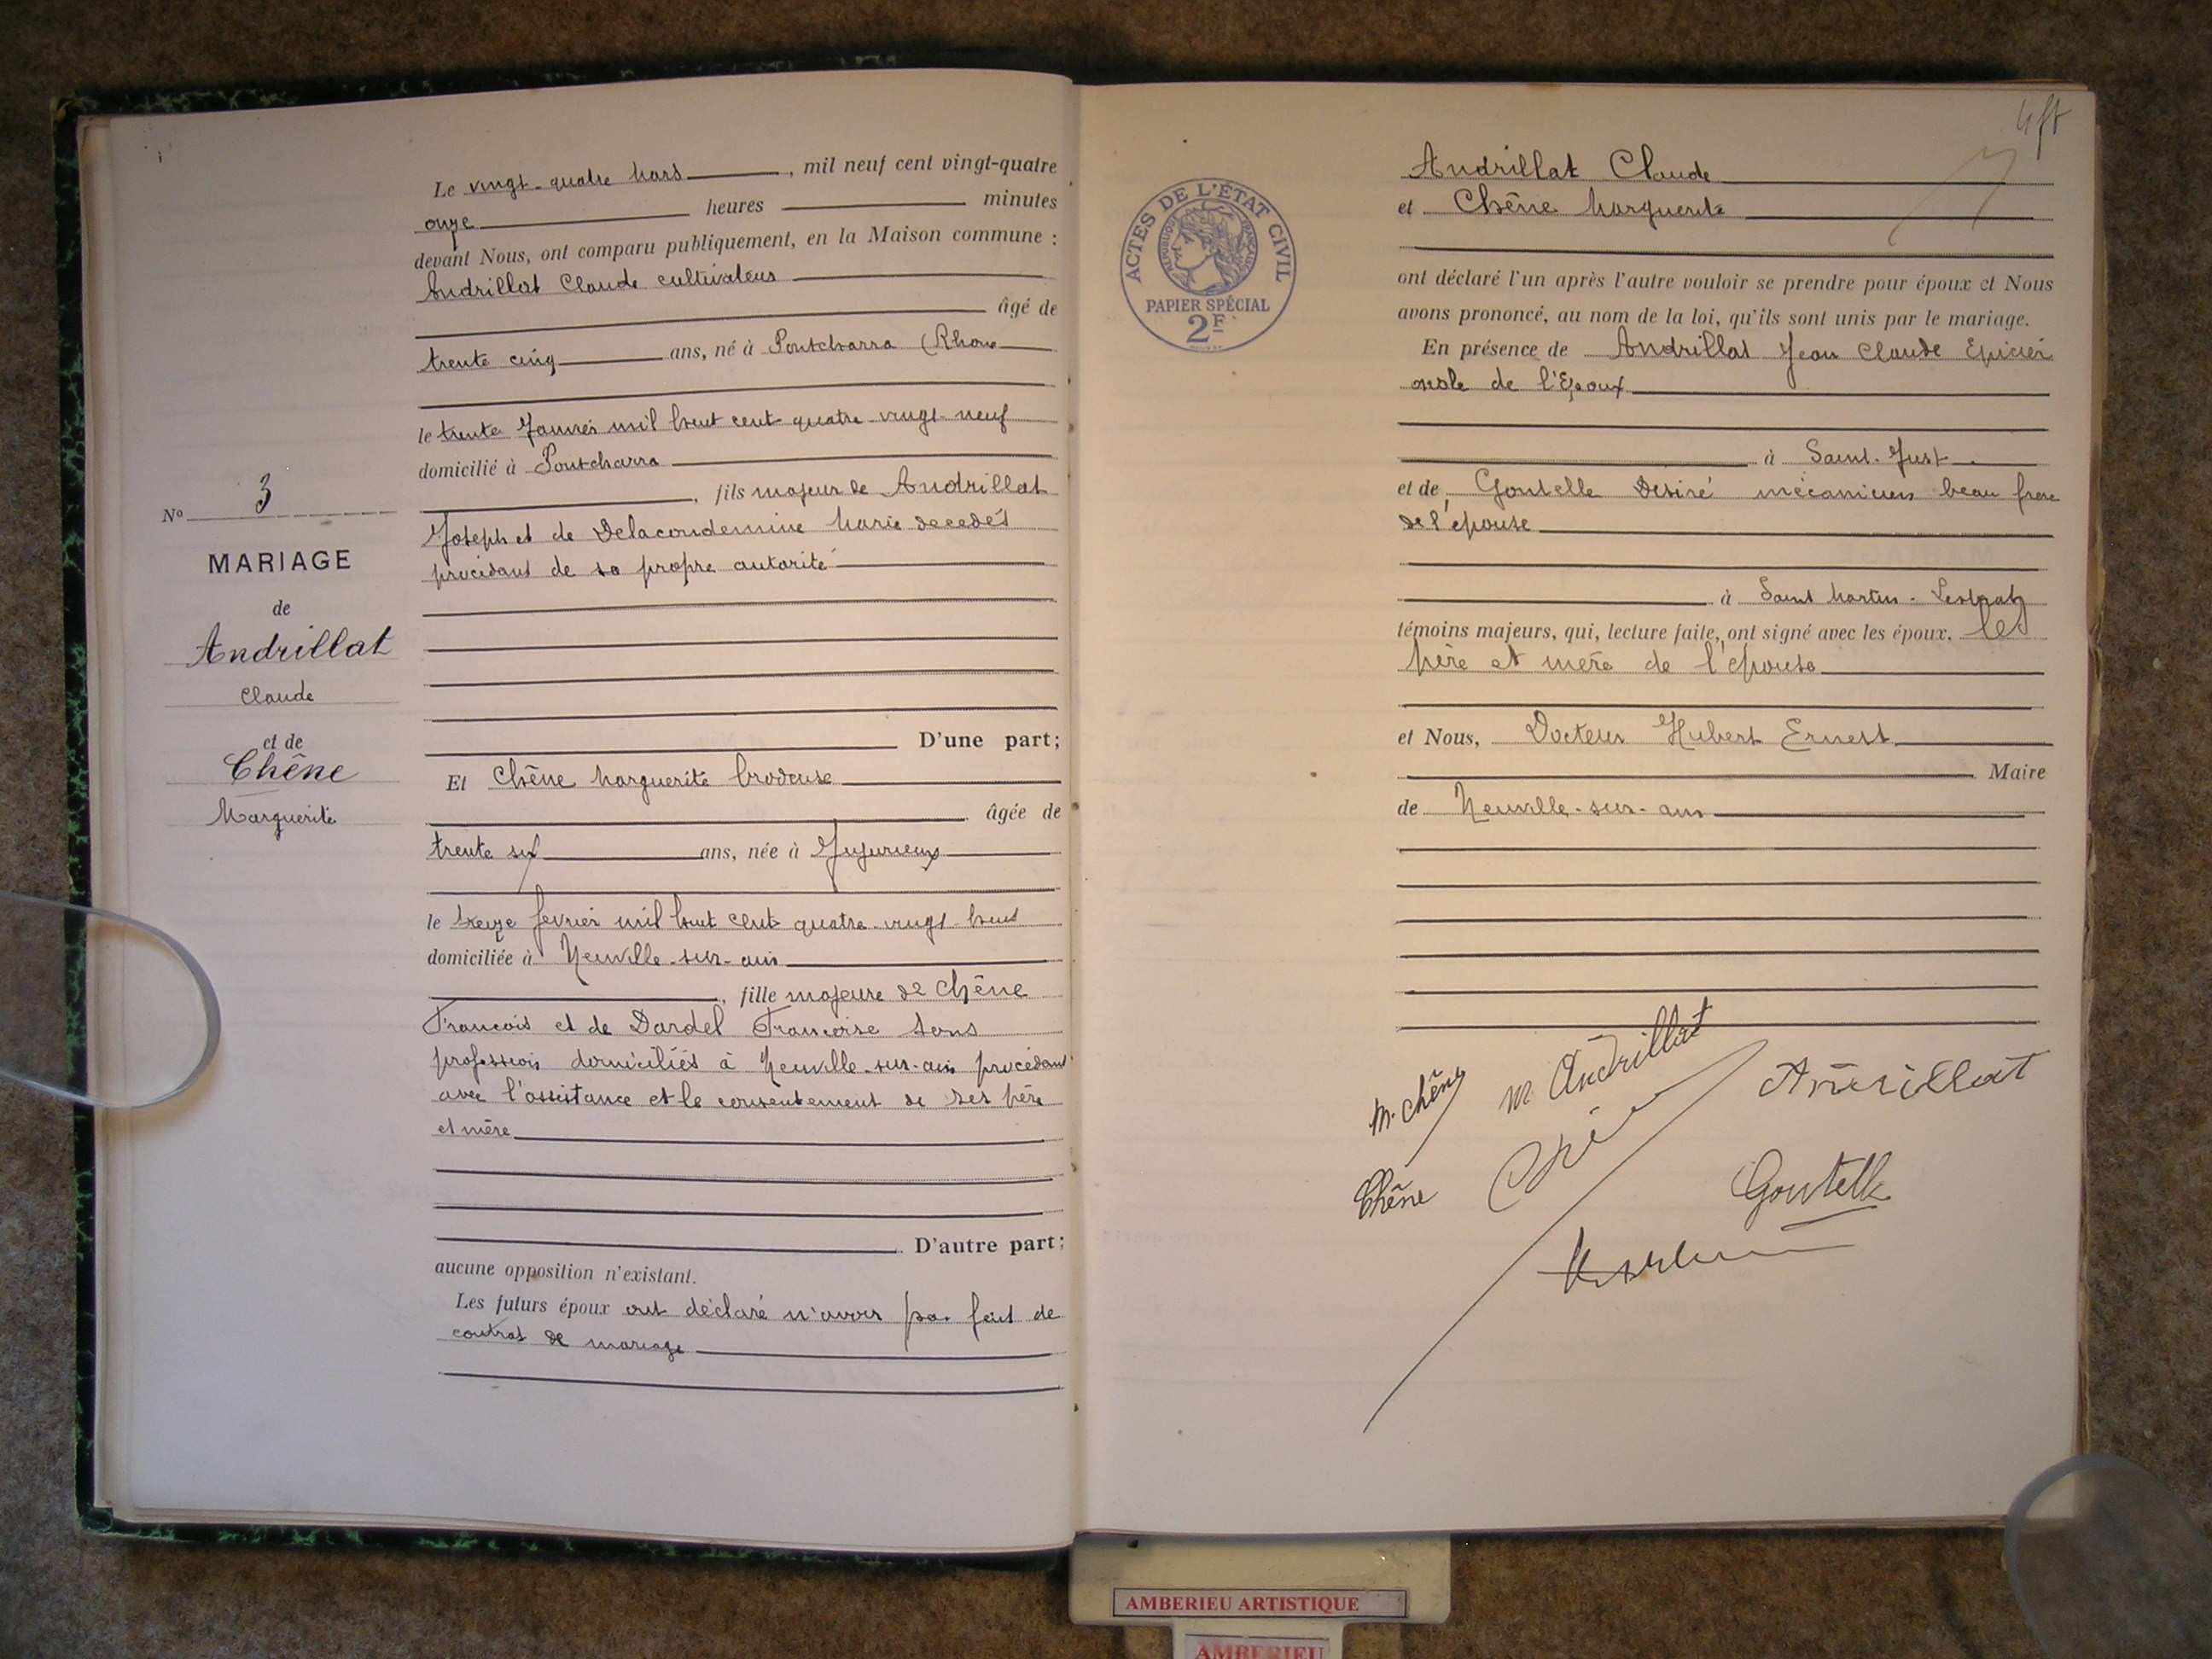 Le vingt-quatre Mars, mil neuf cent vingt-quatre
onze heures minutes
devant Nous, ont comparu publiquement, en la Maison commune :
Andrillat Claude cultivateur
âgé de
trente cinq ans, né à Pontcharra (Rhone
le trente Janvier mil huit cent quatre-vingt-neuf
domicilié à Pontcharra
, fils majeur de Andrillat
Joseph et de Delacondemine Marie decedés
procédant de sa propre autorité
D'une part;
Et Chêne Marguerite brodeuse
âgée de
trente six ans, née à Jujurieux
le treize fevrier mil huit cent quatre-vingt-huit
domiciliée à Neuville-sur-ain
, fille majeure de Chêne
Francois et de Dardel Francoise sans
profession domiciliés à Neuville-sur-ain procédant
avec l'assistance et le consentement de ses père
et mère
D'autre part;
aucune opposition n'existant.
Les futurs époux ont déclaré n'avoir pas fait de
contrat de mariage
No 3
MARIAGE
de
Andrillat
Claude
et de
Chêne
Marguerite
ACTES DE L'ÉTAT CIVIL
RÉPUBLIQUE FRANÇAISE
PAPIER SPÉCIAL
2F
Andrillat Claude
et Chêne Marguerite
ont déclaré l'un après l'autre vouloir se prendre pour époux et Nous
avons prononcé, au nom de la loi, qu'ils sont unis par le mariage.
En présence de Andrillat Jean Claude Epicier
oncle de l'Epoux
à Saint-Just
et de Gontelle Désiré mécanicien beau frere
de l'epouse
à Saint Martin-Lestrat
témoins majeurs, qui, lecture faite, ont signé avec les époux, les
père et mère de l'epouse
et Nous, Docteur Hubert Ernest
Maire
de Neuville-sur-ain
M. Chêne
M. Andrillat
Andrillat
Chêne
Gontelle
AMBERIEU ARTISTIQUE
AMBERIEU